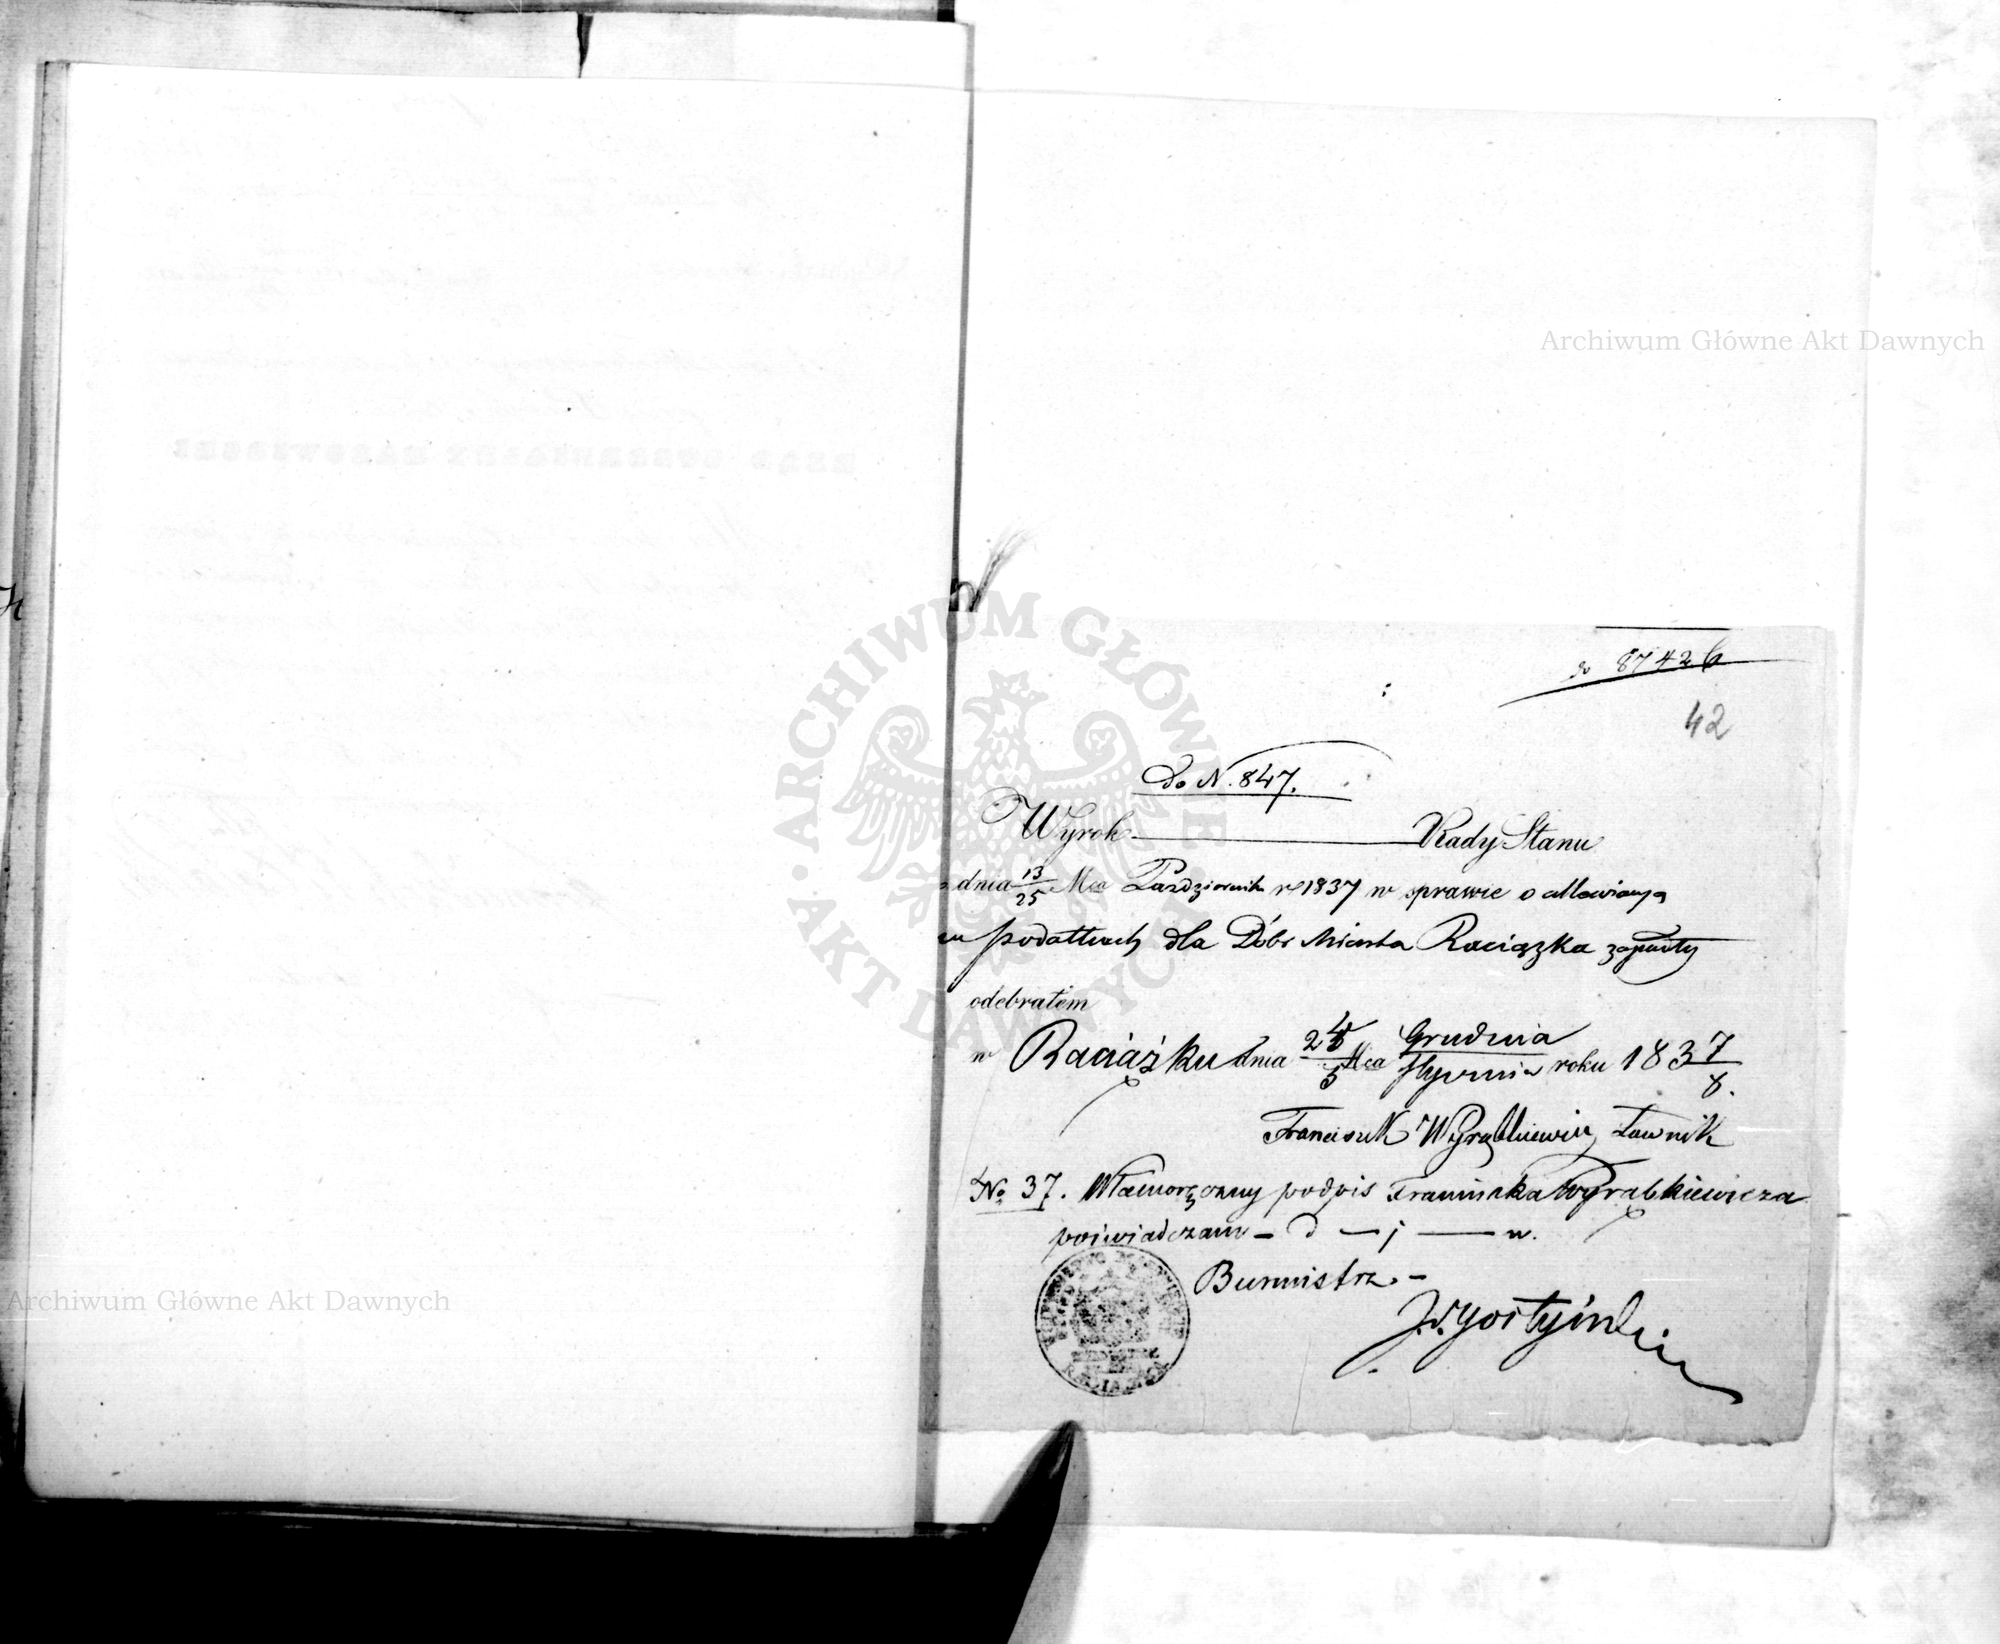 do 87426
42
Do N. 847.
Wyrok Rady Stanu
z dnia 13/25 Mca Października r. 1837 w sprawie o allewiacyą
w podatkach dla Dóbr Miasta Raciązka zapadły
odebrałem
w Raciążku dnia 24/5 Mca Grudnia/Stycznia roku 1837/8.
Franciszek Wyrąbkiewicz Ławnik
No 37. Własnoręczny podpis Franciszka Wyrąbkiewicza
poświadczam – d – j – w.
Burmistrz. –
J. Gostyński
RACIĄŻKA
Archiwum Główne Akt Dawnych
Archiwum Główne Akt Dawnych
ARCHIWUM GŁÓWNE AKT DAWNYCH